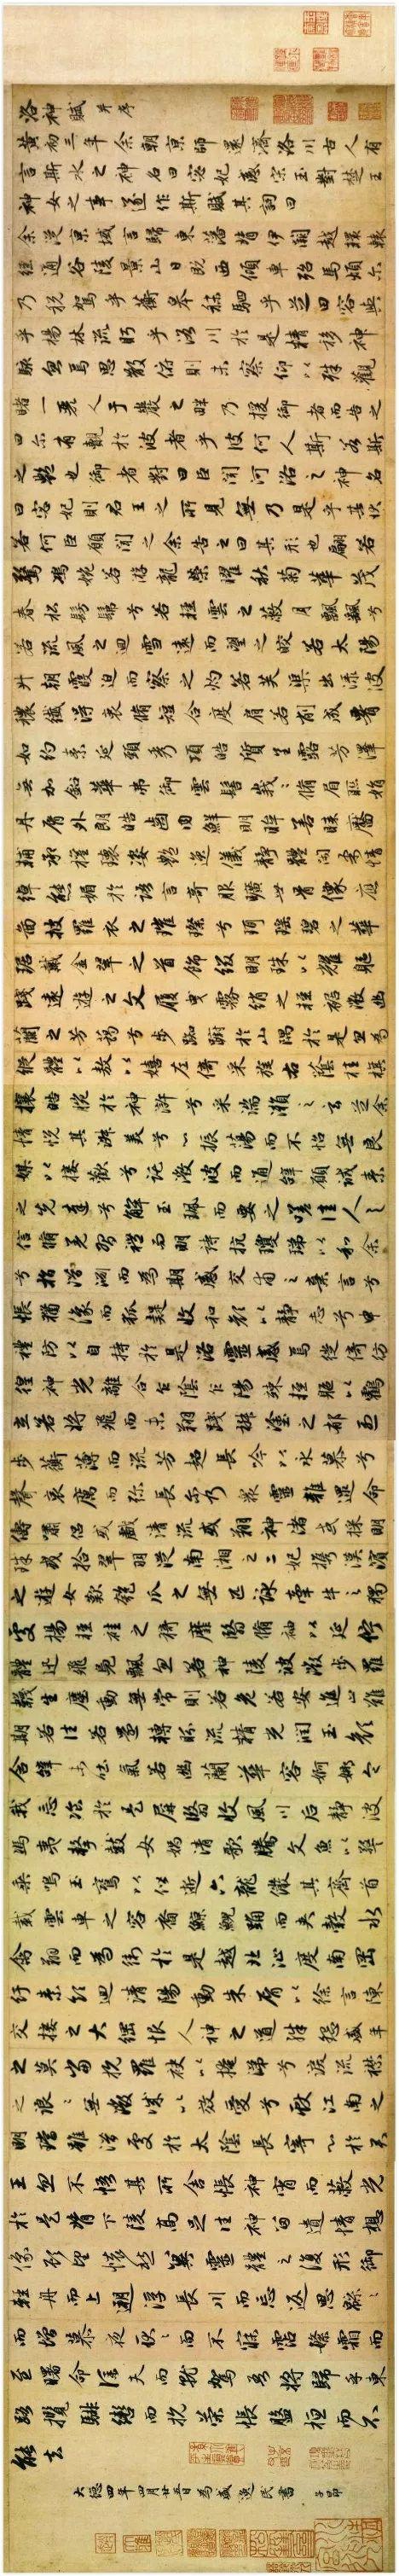 洛神賦 并序
黃初三年余朝京師還濟洛川古人有
言斯水之神名曰宓妃感宋玉對楚王
神女之事遂作斯賦其詞曰
余從京域言歸東藩背伊闕越轘轅
經通谷陵景山日既西傾車殆馬煩尔
乃税駕乎蘅皋秣駟乎芝田容與
乎楊林流眄乎洛川於是精移神
駭忽焉思散俯則未察仰以殊觀
睹一麗人于巖之畔乃援御者而告之
曰尔有覿於彼者乎彼何人斯若斯
之艷也御者對曰臣聞河洛之神名
曰宓妃則君王之所見無乃是乎其狀
若何臣願聞之余告之曰其形也翩若
驚鴻婉若游龍榮曜秋菊華茂
春松髣髴兮若輕雲之蔽月飄飄兮
若流風之迴雪遠而望之皎若太陽
升朝霞迫而察之灼若芙蕖出渌波
襛纖得衷脩短合度肩若削成腰
如約素延頸秀項皓質呈露芳澤
無加鉛華弗御雲髻峩〻脩眉聯娟
丹脣外朗皓齒内鮮明眸善睞靨
輔承權瓌姿艷逸儀靜體閑柔情
綽態媚於語言奇服曠世骨像應
圖披羅衣之璀璨兮珥瑤碧之華
琚戴金翠之首飾綴明珠以耀軀
踐遠遊之文履曳霧綃之輕裾微幽
蘭之芳藹兮步踟躕於山隅於是忽焉
縱體以敖以嬉左倚采旄右蔭桂旗
攘皓腕於神滸兮采湍瀨之玄芝余
情悅其淑美兮心振蕩而不怡無良
媒以接歡兮託微波而通辭願誠素
之先達兮解玉珮而要之嗟佳人之
信脩羌習禮而明詩抗瓊珶以和余
兮指潛淵而為期感交甫之棄言兮
悵猶豫而狐疑收和顏以靜志兮申
禮防以自持於是洛靈感焉徙倚彷
徨神光離合乍陰乍陽竦輕軀以鶴
立若將飛而未翔踐椒塗之郁烈
步蘅薄而流芳超長吟以永慕兮
聲哀厲而彌長尔乃衆靈雜遝命
儔嘯侶或戲清流或翔神渚或採明
珠或拾翠羽從南湘之二妃攜漢濱
之遊女歎匏瓜之無匹詠牽牛之獨
處揚輕袿之猗靡翳脩袖以延佇
體迅飛鳧飄忽若神陵波微步羅
襪生塵動無常則若危若安進止難
期若往若還轉眄流精光潤玉顏
含辭未吐氣若幽蘭華容婀娜令
我忘飡於是屏翳收風川后靜波
馮夷擊鼓女媧清歌騰文魚以警
乘鳴玉鸞以偕逝六龍儼其齊首
載雲車之容裔鯨鯢踊而夾轂水
禽翔而為衛於是越北沚度南岡
紆素領迴清陽動朱脣以徐言陳
交接之大綱恨人神之道殊怨盛年
之莫當抗羅袂以掩涕兮淚流襟
之浪〻無微情以效愛兮獻江南之
明璫雖潛處於太陰長寄心於君
王忽不悟其所舍悵神宵而蔽光
於是背下陵高足往神留遺情想
像顧望懷愁冀靈體之復形御
輕舟而上遡浮長川而忘返思綿〻
而增慕夜耿〻而不寐霑繁霜而
至曙命僕夫而就駕吾將歸乎東
路攬騑轡而抗策悵盤桓而不
能去
大德四年四月廿五日為盛逸民書 子昂